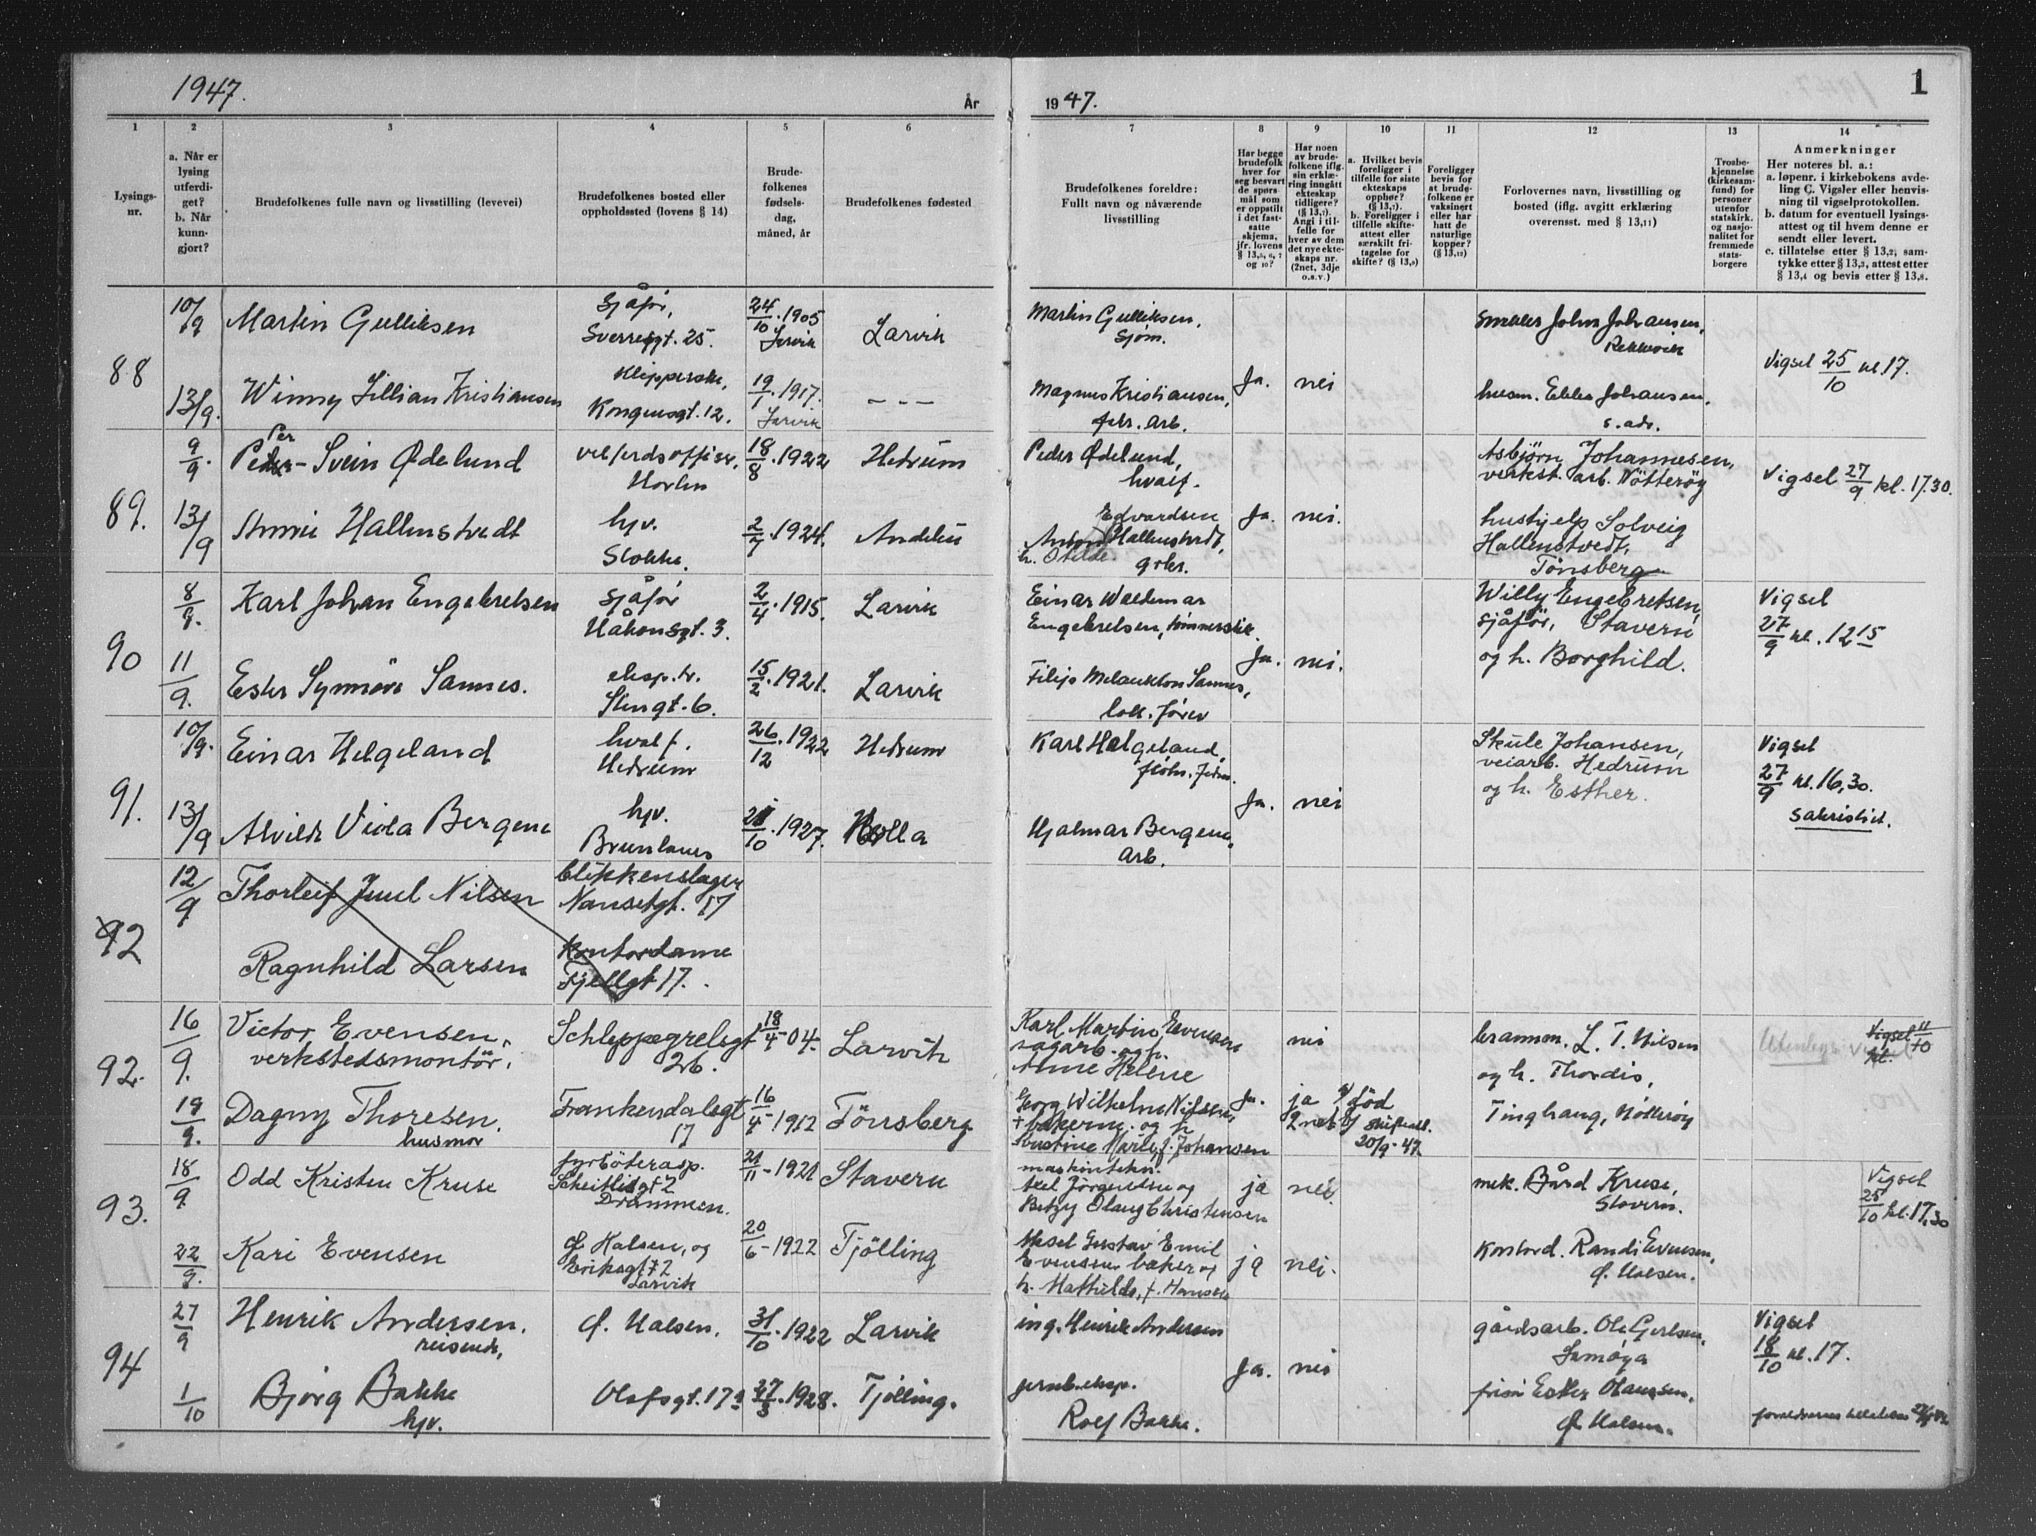 1947.
År
1947.
1
1
2
3
4
5
6
7
8
9
10
11
12
13
14
Lysings-
nr.
a. Når er
lysing
utferdi-
get?
b. Når
kunn-
gjort?
Brudefolkenes fulle navn og livsstilling (levevei)
Brudefolkenes bosted eller
oppholdssted (lovens § 14)
Brude-
folkenes
fødsels-
dag,
måned, år
Brudefolkenes fødested
Brudefolkenes foreldre:
Fullt navn og nåværende
livsstilling
Har begge
brudefolk
hver for
seg besvart
de spørs-
mål som
er oppstilt
i det fast-
satte
skjema,
jfr. lovens
§ 13,5, 6, 7
og 10?
Har noen
av brude-
folkene iflg.
sin erklæ-
ring inngått
ekteskap
tidligere?
(§ 13,7).
Angi i til-
felle for
hver av dem
det nye ekte-
skaps nr.
(2net, 3dje
o.s.v.)
a. Hvilket bevis
foreligger i
tilfelle for siste
ekteskaps
opphør?
(§ 13,7).
b. Foreligger i
tilfelle skifte-
attest eller
særskilt fri-
tagelse for
skifte? (§ 13,9)
Foreligger
bevis for
at brude-
folkene er
vaksinert
eller har
hatt de
naturlige
kopper?
(§ 13,12)
Forlovernes navn, livsstilling og
bosted (iflg. avgitt erklæring
overensst. med § 13,11)
Trosbe-
kjennelse
(kirkesam-
fund) for
personer
utenfor
statskirk.
og nasjo-
nalitet for
fremmede
stats-
borgere
Anmerkninger
Her noteres bl. a.:
a. løpenr. i kirkebokens avde-
ling C. Vigsler eller henvis-
ning til vigselprotokollen.
b. datum for eventuell lysings-
attest og til hvem denne er
sendt eller levert.
c. tillatelse etter § 13,2, sam-
tykke etter § 13,3, attest etter
§ 13,4 og bevis etter § 13,8.
88
10/9
Martin Gulliksen
Sjåfør,
Sverresgt. 25.
24/10 . 1905
Larvik
Larvik
Martin Gulliksen,
Sjøm.
smekker John Johansen,
Rekkevik
Vigsel 25/10 kl. 17.
13/9.
Winny Lillian Kristiansen
Klipperske,
Kongensgt. 12.
19/1 . 1917.
Larvik
- - -
Magnus Kristiansen,
fabr. arb.
Ja.
nei
husm. Ebba Johansen,
s. adr.
89.
9/9.
Per
Peder-Svein Ødelund
velferdsoffiser,
Horten
18/8 . 1922
Hedrum
Peder Ødelund,
hvalf.
Asbjørn Johannesen,
verkst. arb. Nötteröy
Vigsel 27/9 kl. 17.30.
13/9
Annie Hallenstvedt
hjv.
Stokke.
2/7 . 1924.
Andebu
Edvardsen
Anton Hallenstvedt,
h. Otilde. gbr.
Ja.
nei.
hushjelp Solveig
Hallenstvedt,
Tønsberg
90
8/9.
Karl Johan Engebretsen
sjåfør
Håkonsgt. 3.
2/4 . 1915.
Larvik
Einar Waldemar
Engebretsen, tømmerstik.
Willy Engebretsen,
sjåför, Stavern
og h. Borghild.
Vigsel
27/9 kl. 12 15
11/9.
Ester Synnøve Sannes.
eksp. tr.
Stengt. 6.
15/2 . 1921.
Larvik
Filip Melankton Sannes,
lok. fører
Ja.
nei.
91.
10/9.
Einar Helgeland
hvalf.
Hedrum
26/12 . 1922
Hedrum
Karl Helgeland,
Skule Johansen,
veiarb. Hedrum
og h. Esther.
Vigsel
27/9 kl. 16,30.
Sakristiet.
13/9
Alvilde Viola Bergene
hjv.
Brunlanes
/10 . 1927.
Holla
Hjalmar Bergene,
Arb.
Ja.
nei
92
12/9
Thorleif Juul Nilsen
blikkenslager
Nansetgt. 17
Ragnhild Larsen
Kontordame
Fjellgt 17.
92.
16/9.
Victor Evensen,
verkstedsmontör.
Schleppegrelsgt
26.
18/4-04.
Larvik
Karl Martin Evensen
sagarb. og h.
Anne Helene
nei
brannm. L. T. Nilsen
og h. Thordis,
Tinghaug, Nötteröy
Utenbys vigsel
Vigsel 11/10
kl.
19/9.
Dagny Thoresen,
husmor
Frankendalsgt
17
16/4-1912
Tönsberg
Georg Wilhelm Nilsen,
+ bakerm. og h
Marie f. Johansen
Ja.
ja
2net
a/ död
b/ skifteatt.
20/9-47
93.
18/9
Odd Kristen Kruse
fyrböterasp.
Scheitliesgt 2
Drammen.
21/11-1921
Stavern
maskintekn.
Axel Jörgensen og
Betzy Olaug Christensen
ja
nei
mek. Bård Kruse,
Stavern.
Vigsel
25/10 kl. 17,30
22/9.
Kari Evensen
Ø. Halsen, og
Eriksgt 2
Larvik
20/6-1922
Tjölling
Aksel Gustav Emil
Evensen baker og
h. Mathilde, f. Hansen
ja
nei.
Kontord. Randi Evensen,
Ø. Halsen.
94
27/9
Henrik Andersen,
reisende,
Ø. Halsen.
31/10 . 1922
Larvik
ing. Henrik Andersen
gårdsarb. Ole Gerlsen,
Vigsel
18/10 kl. 17.
1/10
Bjørg Bakke
hjv.
Olafsgt. 17a
27/3 . 1928.
Tjölling.
jernb. eksp.
Rolf Bakke.
Ja.
nei
frisø Ester Olaussen.
Ø Halsen.
foreldrenes tillatelse